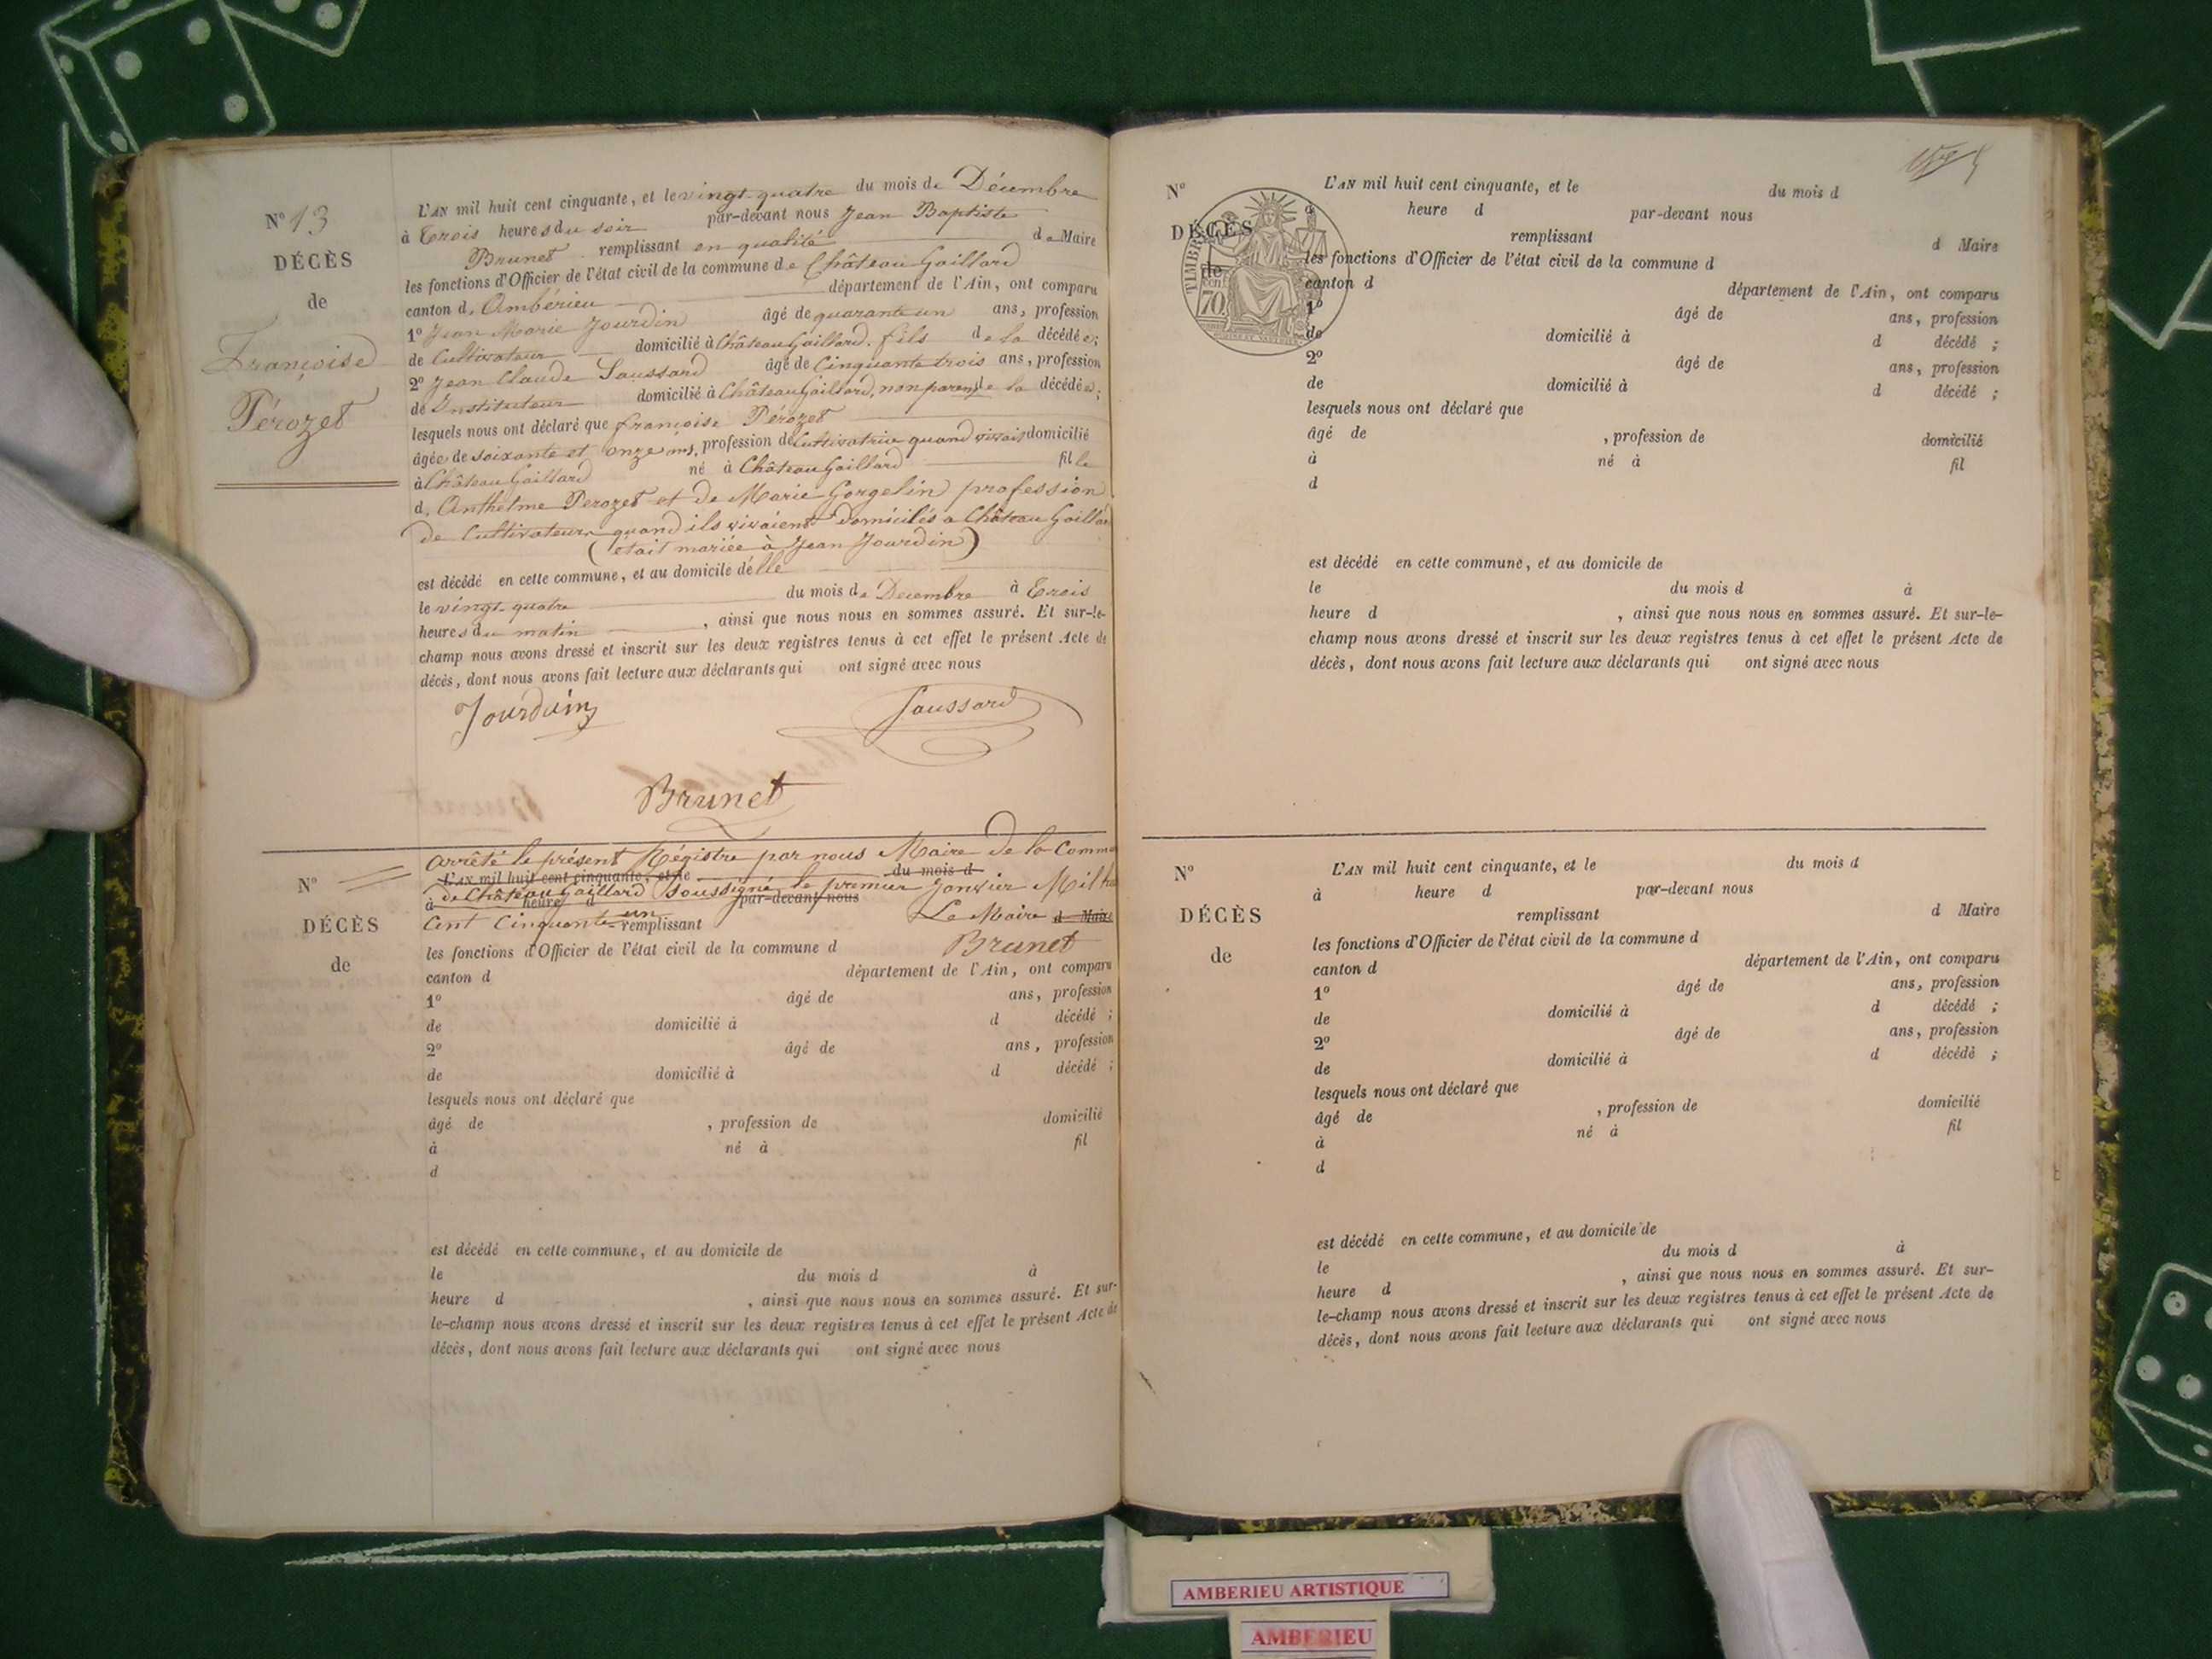 N° 13
DÉCÈS
de
Françoise
Pérozet
L'AN mil huit cent cinquante, et le vingt-quatre du mois de Décembre
à Trois heures du soir par-devant nous Jean Baptiste
Brunet remplissant en qualité de Maire
les fonctions d'Officier de l'état civil de la commune de Château Gaillard
canton d. Ambérieu département de l'Ain, ont comparu
1° Jean Marie Jourdin âgé de quarante un ans, profession
de Cultivateur domicilié à Château Gaillard, fils de la décédée;
2° Jean Claude Saussard âgé de Cinquante trois ans, profession
de Instituteur domicilié à Château Gaillard, non parent de la décédée;
lesquels nous ont déclaré que françoise Pérozet
âgée de soixante et onze ans, profession de Cultivatrice quand vivait domicilié
à Château Gaillard né à Château Gaillard fille
d. Anthelme Perozet et de Marie Gorgelin profession
de Cultivateurs quand ils vivaient domiciliés a Château Gaillard
(était mariée à Jean Jourdin)
est décédé en cette commune, et au domicile d'elle
le vingt-quatre du mois de Decembre à Trois
heures du matin, ainsi que nous nous en sommes assuré. Et sur-le-
champ nous avons dressé et inscrit sur les deux registres tenus à cet effet le présent Acte de
décès, dont nous avons fait lecture aux déclarants qui ont signé avec nous
Jourdain Saussard
Brunet
arrêté le présent Régistre par nous Maire de la Comm
L'AN mil huit cent cinquante, et le du mois d
de Château Gaillard soussigné le premier Janvier Mil h
à heure d par-devant nous
Cent Cinquante-un Le Maire d Maire
remplissant
Brunet
N°
DÉCÈS
de
les fonctions d'Officier de l'état civil de la commune d
canton d département de l'Ain, ont comparu
1° âgé de ans, profession
de domicilié à d décédé ;
2° âgé de ans, profession
de domicilié à d décédé ;
lesquels nous ont déclaré que
âgé de , profession de domicilié
à né à fil
d
est décédé en cette commune, et au domicile de
le du mois d à
heure d , ainsi que nous nous en sommes assuré. Et sur-
le-champ nous avons dressé et inscrit sur les deux registres tenus à cet effet le présent Acte de
décès, dont nous avons fait lecture aux déclarants qui ont signé avec nous
N°
DÉCÈS
de
TIMBRE
70
L'AN mil huit cent cinquante, et le du mois d
à heure d par-devant nous
remplissant d Maire
les fonctions d'Officier de l'état civil de la commune d
canton d département de l'Ain, ont comparu
1° âgé de ans, profession
de domicilié à d décédé ;
2° âgé de ans, profession
de domicilié à d décédé ;
lesquels nous ont déclaré que
âgé de , profession de domicilié
à né à fil
d
est décédé en cette commune, et au domicile de
le du mois d à
heure d , ainsi que nous nous en sommes assuré. Et sur-le-
champ nous avons dressé et inscrit sur les deux registres tenus à cet effet le présent Acte de
décès, dont nous avons fait lecture aux déclarants qui ont signé avec nous
N°
DÉCÈS
de
L'AN mil huit cent cinquante, et le du mois d
à heure d par-devant nous
remplissant d Maire
les fonctions d'Officier de l'état civil de la commune d
canton d département de l'Ain, ont comparu
1° âgé de ans, profession
de domicilié à d décédé ;
2° âgé de ans, profession
de domicilié à d décédé ;
lesquels nous ont déclaré que
âgé de , profession de domicilié
à né à fil
d
est décédé en cette commune, et au domicile de
le du mois d à
heure d , ainsi que nous nous en sommes assuré. Et sur-
le-champ nous avons dressé et inscrit sur les deux registres tenus à cet effet le présent Acte de
décès, dont nous avons fait lecture aux déclarants qui ont signé avec nous
AMBERIEU ARTISTIQUE
AMBERIEU